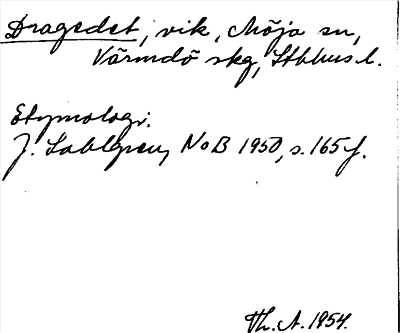 Dragedet, vik, Möja sn,
Värmdö skg, Sthlms l.
Etymologi.
J. Sahlgren, NoB 1950, s. 165 f.
Th. A. 1954.